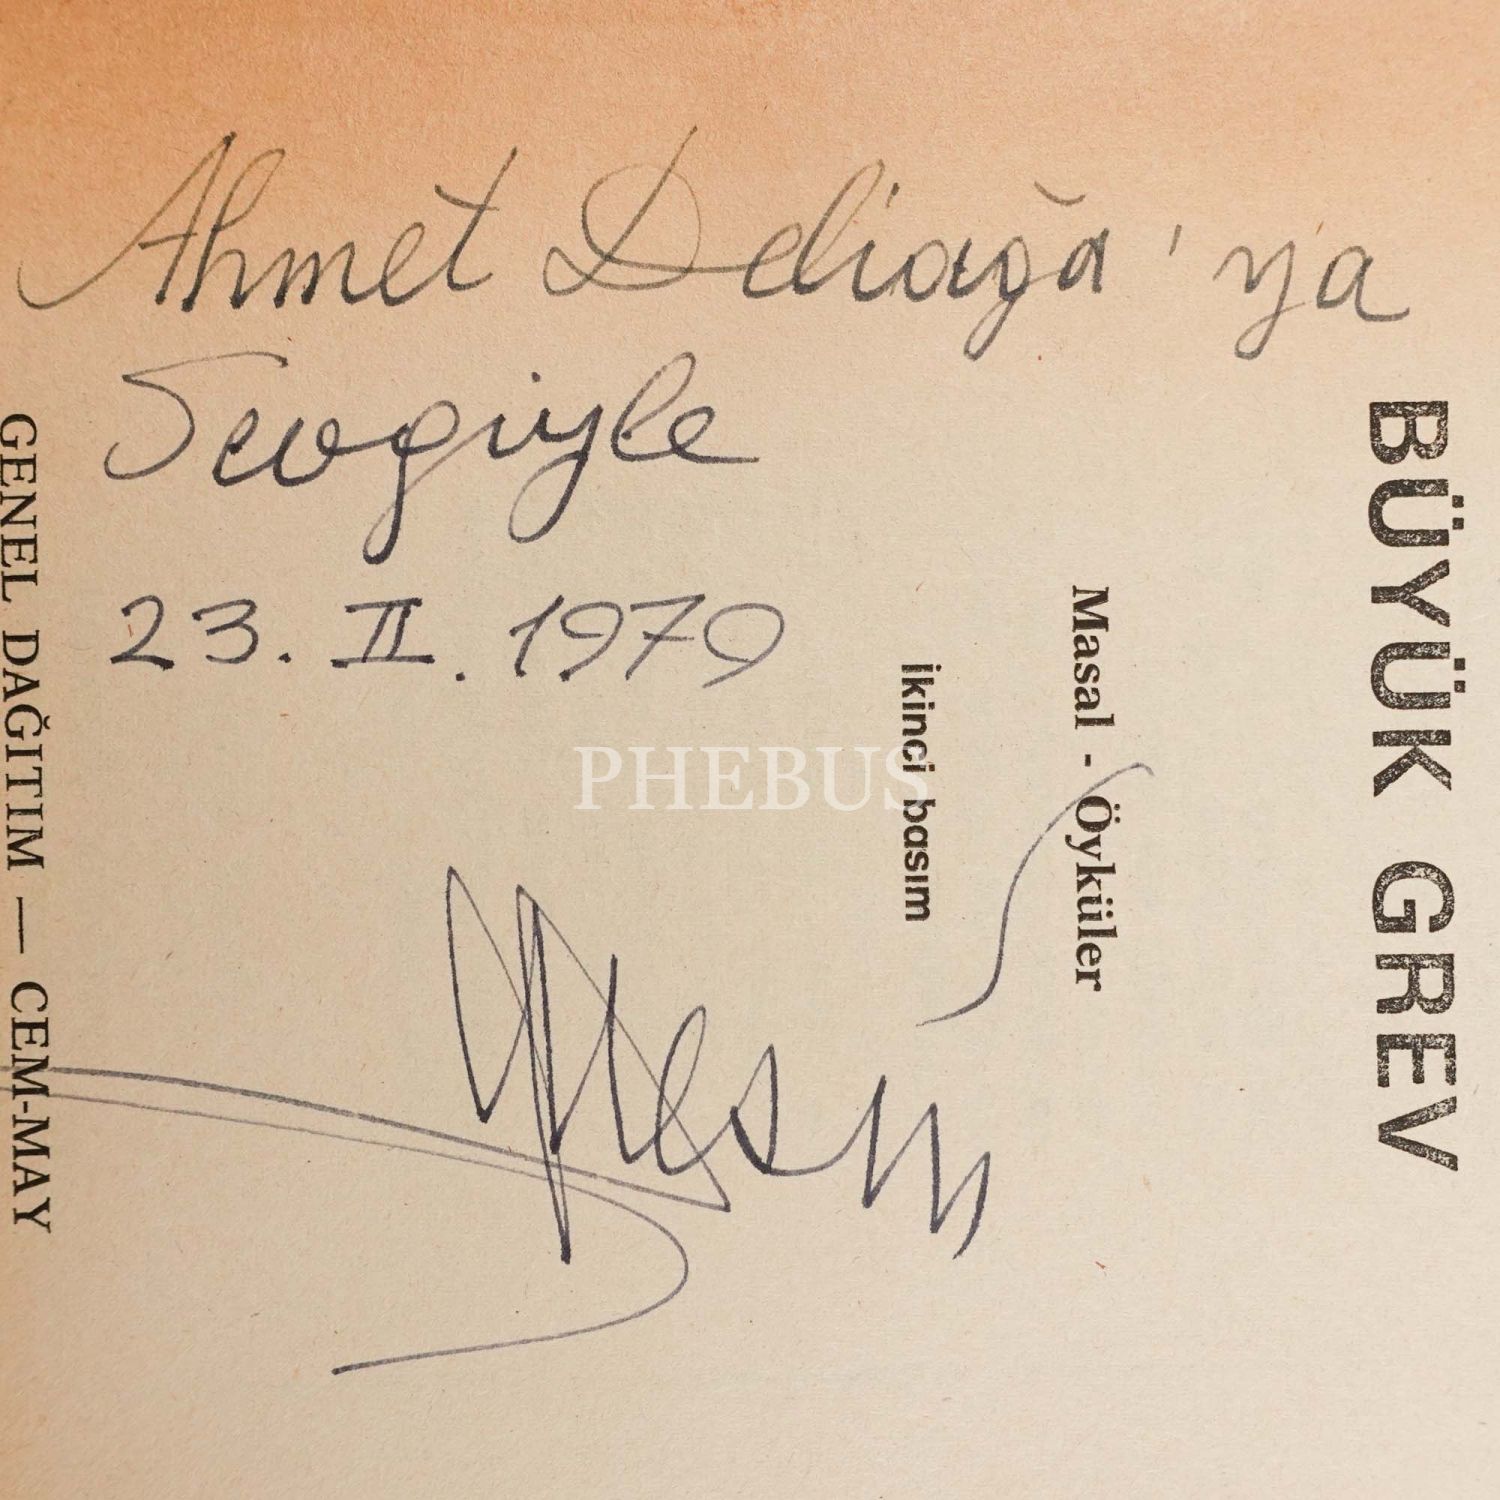 Ahmet Deliağa'ya
Sevgiyle
23. II. 1979
BÜYÜK GREV
Masal - Öyküler
İkinci basım
GENEL DAĞITIM — CEM-MAY
PHEBUS